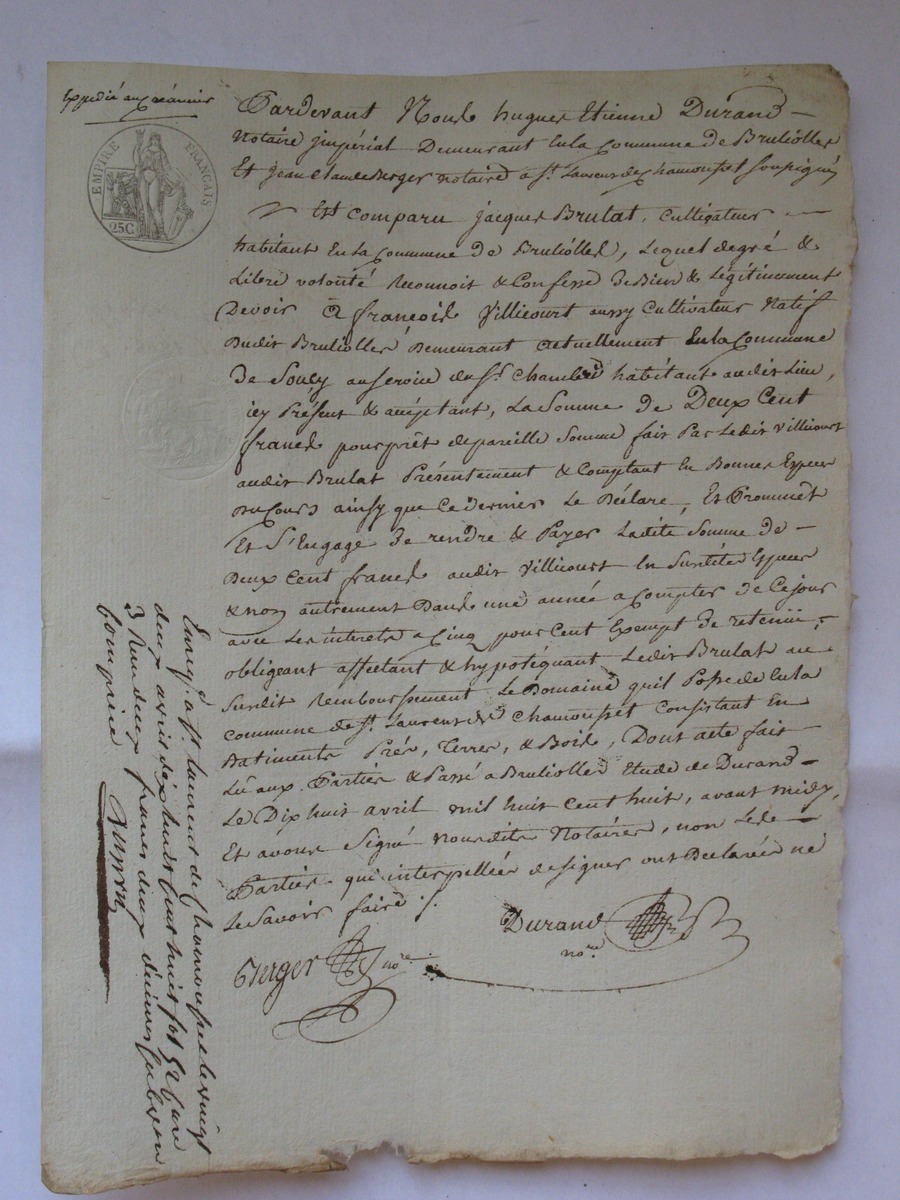 Expédié au Créancier
EMPIRE FRANÇAIS
25C
Pardevant Nous hugues Etienne Durand
Notaire jmpérial Demeurant En la Commune de Bruliolles
Et Jean Claude Berger Notaire a St. Laurens de Chamousset soussignés
Est comparu jacques Brulat, Cultivateur
habitant En la Commune de Bruliolles, Lequel de gré &
Libre volonté Reconnoit & Confesse de Bien & Légitimement
Devoir à françois Villicourt aussy Cultivateur Natif
Dudit Brulioller Demeurant actuellement En la Commune
De Soucy au service du Sr. Chambrd habitant audit Lieu,
icy Présent & acceptant, La Somme de Deux Cent
francs pour prêt de pareille Somme fait Par Ledit Villicourt
audit Brulat Présentement & Comptant En Bonnes Especes
au Cours ainsy que Ce dernier Le Déclare, Et Prommet
Et S'Engage de rendre & Payer Ladite Somme de
Deux Cent francs audit Villicourt En Susdites Especes
& non autrement Dans une année a Compter de Ce jour
avec Les intérets a Cinq pour Cent Exempt de retenue,
obligeant affectant & hypotéquant Ledit Brulat au
Susdit Remboursement Le Domaine qu'il Possede En la
Commune de St. Laurens de Chamousset Consistant En
Batiments Prés, Terres, & Bois, Dont acte fait
Lu aux Parties & Passé a Brulioller Etude de Durand
Le Dix huit avril mil huit Cent huit, avant midy,
Et avons Signé nousdits Notaires, non Lesd.
Parties qui interpellées de signer ont Déclarées ne
Le Savoir faire ./.
Durand
nore
Berger nore
Enregé. a St. laurent de Chamousset le vingt
deux avril dix huit Cent huit fo.
3 Reçu deux francs deux décimes Subvon
Comprise